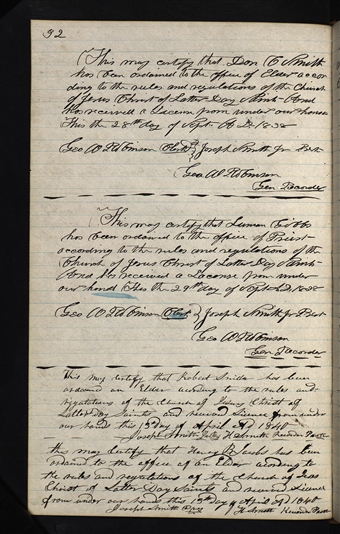 92
This may certify that Don C Smith
has been ordained to the office of Elder accor
ding to the rules and regulations of the Church
of Jesus Christ of Latter Day Saints And
Has received a License from under our hands
This the 28th day of Sept. A D 1838
Geo W Robinson Clerk } Joseph Smith Jr Prest
Geo W Robinson
Gen Recorder
This may certify that Lyman Gibbs
has been ordained to the office of Priest
according to the rules and regulations of the
Church of Jesus Christ of Latter Day Saints
And Has received a License from under
our hand This the 29th day of Sept A D 1838
Geo W Robinson Clerk } Joseph Smith Jr Prest
Geo W Robinson
Gen Recorder
This may certify that Robert Snider has been
ordained an Elder according to the rules and
regulations of the Church of Jesus Christ of
Latter Day Saints and received License from under
our hands this 13th day of April A D 1840
Joseph Smith H Smith Recorder
This may certify that Henry has been
ordained to the office of an Elder according to
the rules and regulations of the Church of Jesus
Christ of Latter Day Saints and received License
from under our hands this 13th day of April A D 1840
Joseph Smith H Smith Recorder